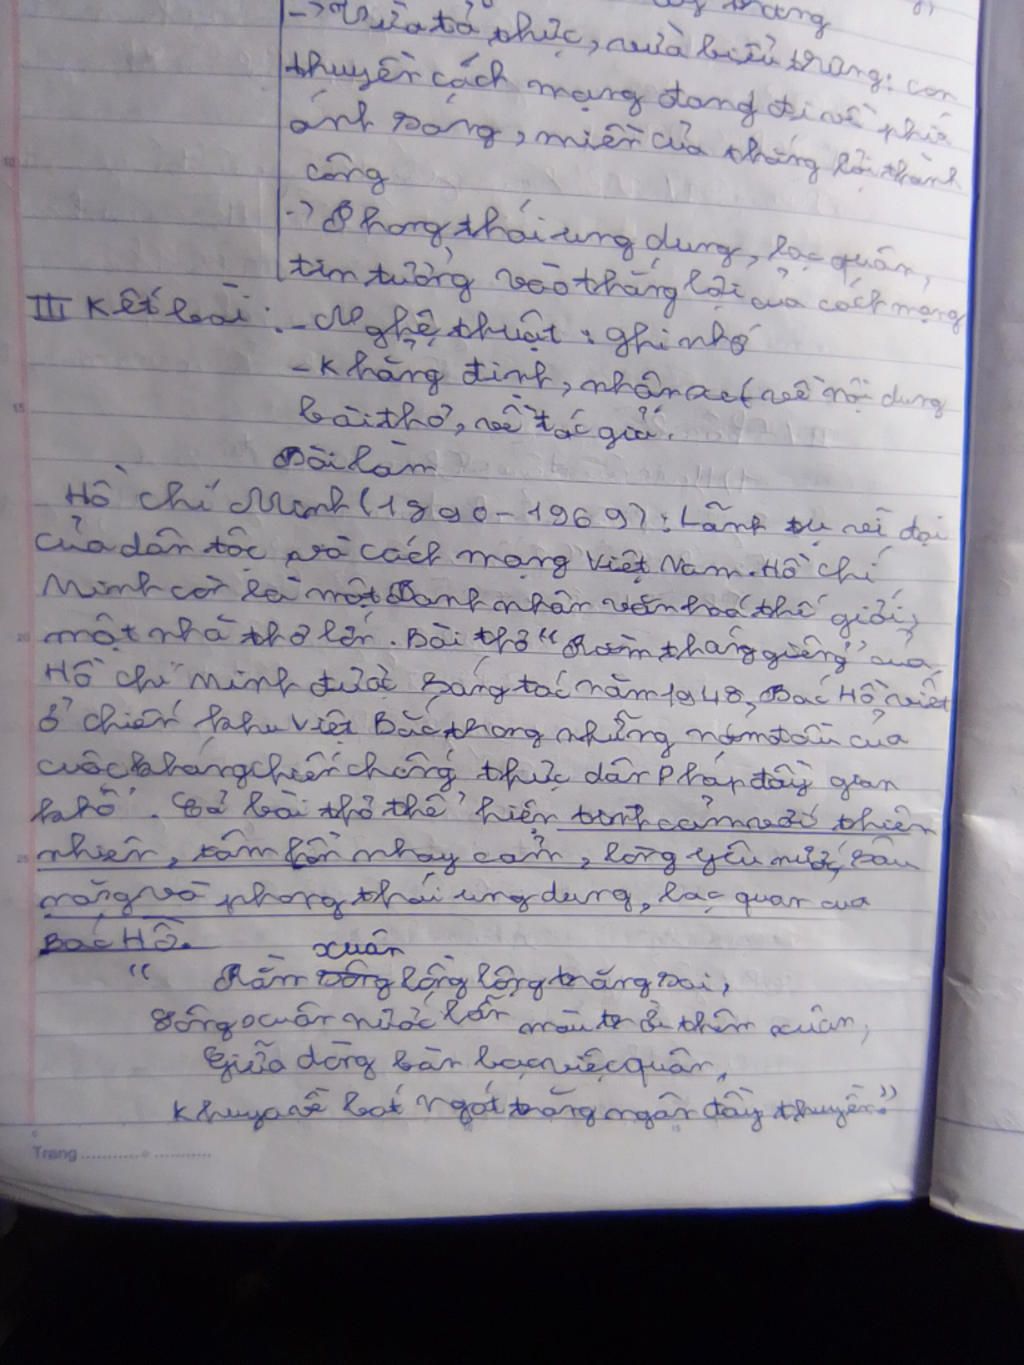 -> Vừa tả thực, vừa biểu trưng: con
thuyền cách mạng đang đi về phía
ánh sáng, miền của thắng lợi thành
công
-> Phong thái ung dung, lạc quan,
tin tưởng vào thắng lợi của cách mạng
III Kết bài: - Nghệ thuật: ghi nhớ
- Khẳng định, nhận xét về nội dung
bài thơ, về tác giả.
Bài làm
Hồ Chí Minh (1890-1969): Lãnh tụ vĩ đại
của dân tộc và cách mạng Việt Nam. Hồ Chí
Minh còn là một Danh nhân văn hoá thế giới,
một nhà thơ lớn. Bài thơ "Rằm tháng giêng" của
Hồ Chí Minh được sáng tác năm 1948, Bác Hồ viết
ở chiến khu Việt Bắc trong những năm đầu của
cuộc kháng chiến chống thực dân Pháp đầy gian
khổ. Cả bài thơ thể hiện tình cảm với thiên
nhiên, tâm hồn nhạy cảm, lòng yêu nước, sâu
nặng và phong thái ung dung, lạc quan của
Bác Hồ.
xuân
" Rằm sông lồng lộng trăng soi,
Sông xuân nước lẫn màu trời thêm xuân,
Giữa dòng bàn bạc việc quân,
Khuya về bát ngát trăng ngân đầy thuyền."
Trang